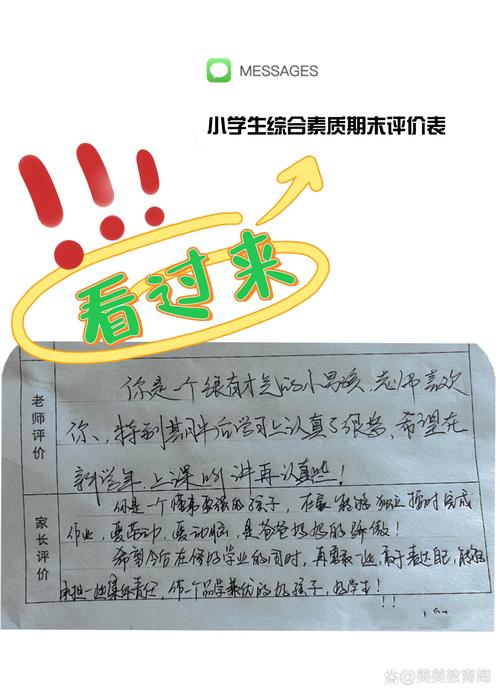 MESSAGES
小学生综合素质期末评价表
看过来
老师评价
你是一个很有才气的小男孩,老师喜欢
你、特别其中后学习上认真了很多,希望在
新学年,上课时讲再认真些!
家长评价
你是一个懂事要强的孩子,在家能够独立按时完成
作业,爱劳动,爱动脑,是爸爸妈妈的骄傲!
希望今后在做好学业的同时,再勇敢一些高于表达,能够
承担一些集体责任,做一个品学兼优的好孩子,好学生!
@美美教育阁